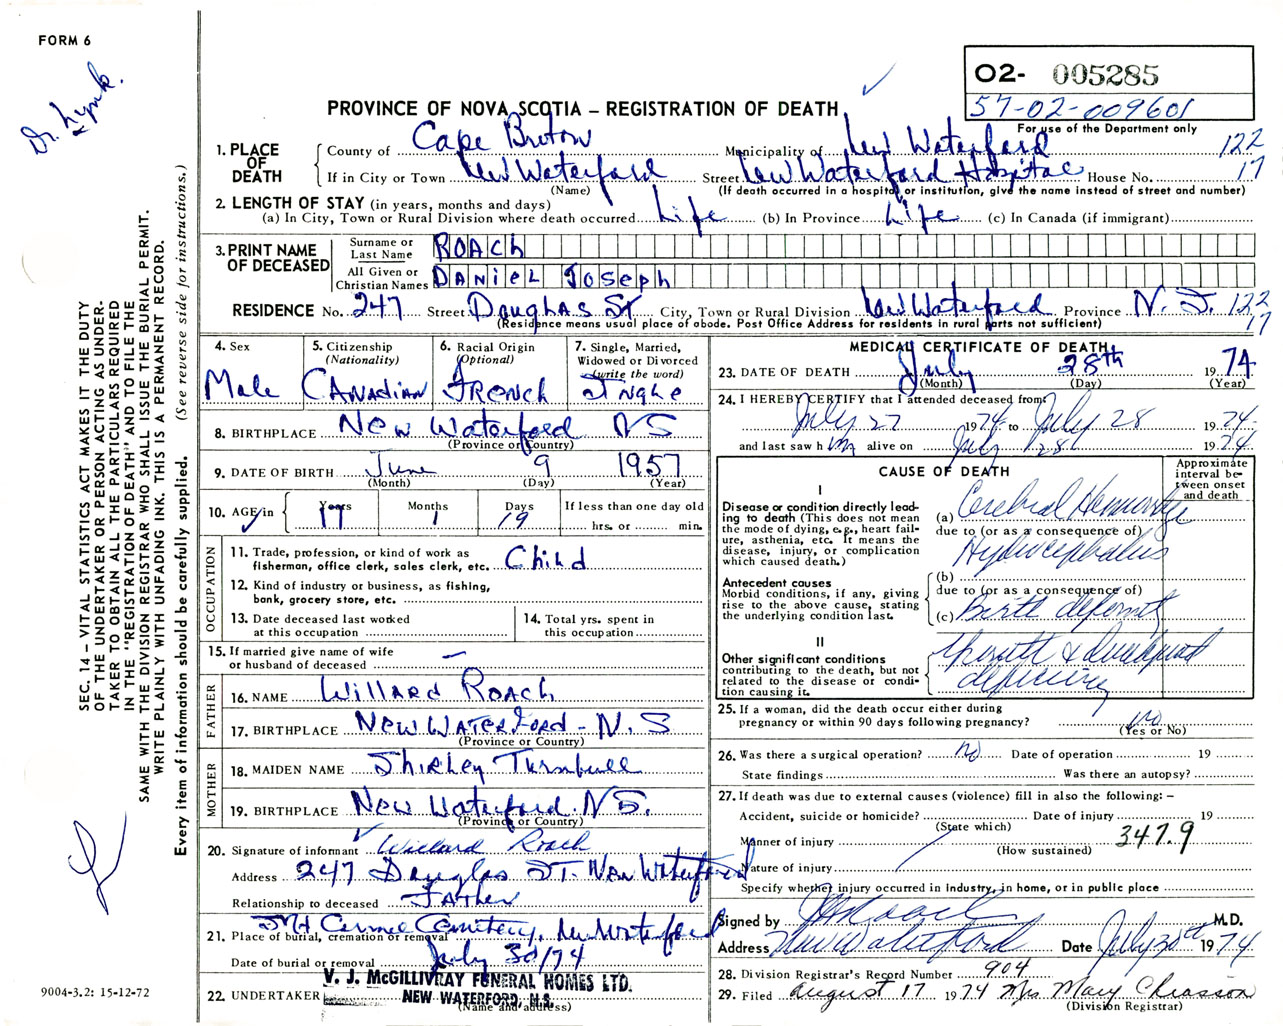 FORM 6
Dr. Lynk.
O2- 005285
57-02-009601
For use of the Department only
PROVINCE OF NOVA SCOTIA – REGISTRATION OF DEATH
1. PLACE OF DEATH
County of Cape Breton Municipality of New Waterford 122
If in City or Town New Waterford Street New Waterford Hospital House No. 17
(Name) (If death occurred in a hospital or institution, give the name instead of street and number)
2. LENGTH OF STAY (in years, months and days)
(a) In City, Town or Rural Division where death occurred Life (b) In Province Life (c) In Canada (if immigrant)
3. PRINT NAME OF DECEASED
Surname or Last Name ROACh
All Given or Christian Names DANiEL JOSEPh
RESIDENCE No. 247 Street Douglas St City, Town or Rural Division New Waterford Province N. S. 122
(Residence means usual place of abode. Post Office Address for residents in rural parts not sufficient) 17
4. Sex
Male
5. Citizenship
(Nationality)
CANADIAN
6. Racial Origin
(Optional)
FRENCH
7. Single, Married, Widowed or Divorced
(write the word)
Single
8. BIRTHPLACE New Waterford NS
(Province or Country)
9. DATE OF BIRTH June 9 1957
(Month) (Day) (Year)
10. AGE in Years Months Days If less than one day old
17 1 19 hrs. or min.
OCCUPATION
11. Trade, profession, or kind of work as
fisherman, office clerk, sales clerk, etc. Child
12. Kind of industry or business, as fishing,
bank, grocery store, etc.
13. Date deceased last worked
at this occupation
14. Total yrs. spent in
this occupation
15. If married give name of wife
or husband of deceased —
FATHER
16. NAME Willard Roach
17. BIRTHPLACE New Waterford - N.S
(Province or Country)
MOTHER
18. MAIDEN NAME Shirley Turnbull
19. BIRTHPLACE New Waterford. NS.
(Province or Country)
20. Signature of informant Willard Roach
Address 247 Douglas ST. New Waterford
Relationship to deceased Father
21. Place of burial, cremation or removal Mt Carmel Cemetery, New Waterford
Date of burial or removal July 30/74
22. UNDERTAKER V. J. McGILLIVRAY FUNERAL HOMES LTD.
NEW WATERFORD, N.S.
(Name and address)
MEDICAL CERTIFICATE OF DEATH
23. DATE OF DEATH July 28th 1974
(Month) (Day) (Year)
24. I HEREBY CERTIFY that I attended deceased from:
July 27 1974 to July 28 1974
and last saw him alive on July 28 1974
CAUSE OF DEATH
Approximate interval between onset and death
I
Disease or condition directly lead-
ing to death (This does not mean
the mode of dying, e.g., heart fail-
ure, asthenia, etc. It means the
disease, injury, or complication
which caused death.)
(a) Cerebral Hemorrhage
due to (or as a consequence of)
Hydrocephalus
Antecedent causes
Morbid conditions, if any, giving
rise to the above cause, stating
the underlying condition last.
(b)
due to (or as a consequence of)
(c) Birth deformity
II
Other significant conditions
contributing to the death, but not
related to the disease or condi-
tion causing it.
Growth &
deficiency
25. If a woman, did the death occur either during
pregnancy or within 90 days following pregnancy? no
(Yes or No)
26. Was there a surgical operation? no Date of operation 19
State findings Was there an autopsy?
27. If death was due to external causes (violence) fill in also the following: –
Accident, suicide or homicide? Date of injury 19
(State which)
Manner of injury 347.9
(How sustained)
Nature of injury
Specify whether injury occurred in industry, in home, or in public place
Signed by M.D.
Address New Waterford Date July 30th 1974
28. Division Registrar's Record Number 904
29. Filed August 17 1974 Mrs Mary Chiasson
(Division Registrar)
SEC. 14 – VITAL STATISTICS ACT MAKES IT THE DUTY
OF THE UNDERTAKER OR PERSON ACTING AS UNDER-
TAKER TO OBTAIN ALL THE PARTICULARS REQUIRED
IN THE "REGISTRATION OF DEATH" AND TO FILE THE
SAME WITH THE DIVISION REGISTRAR WHO SHALL ISSUE THE BURIAL PERMIT.
WRITE PLAINLY WITH UNFADING INK. THIS IS A PERMANENT RECORD.
Every item of information should be carefully supplied. (See reverse side for instructions.)
9004-3.2: 15-12-72